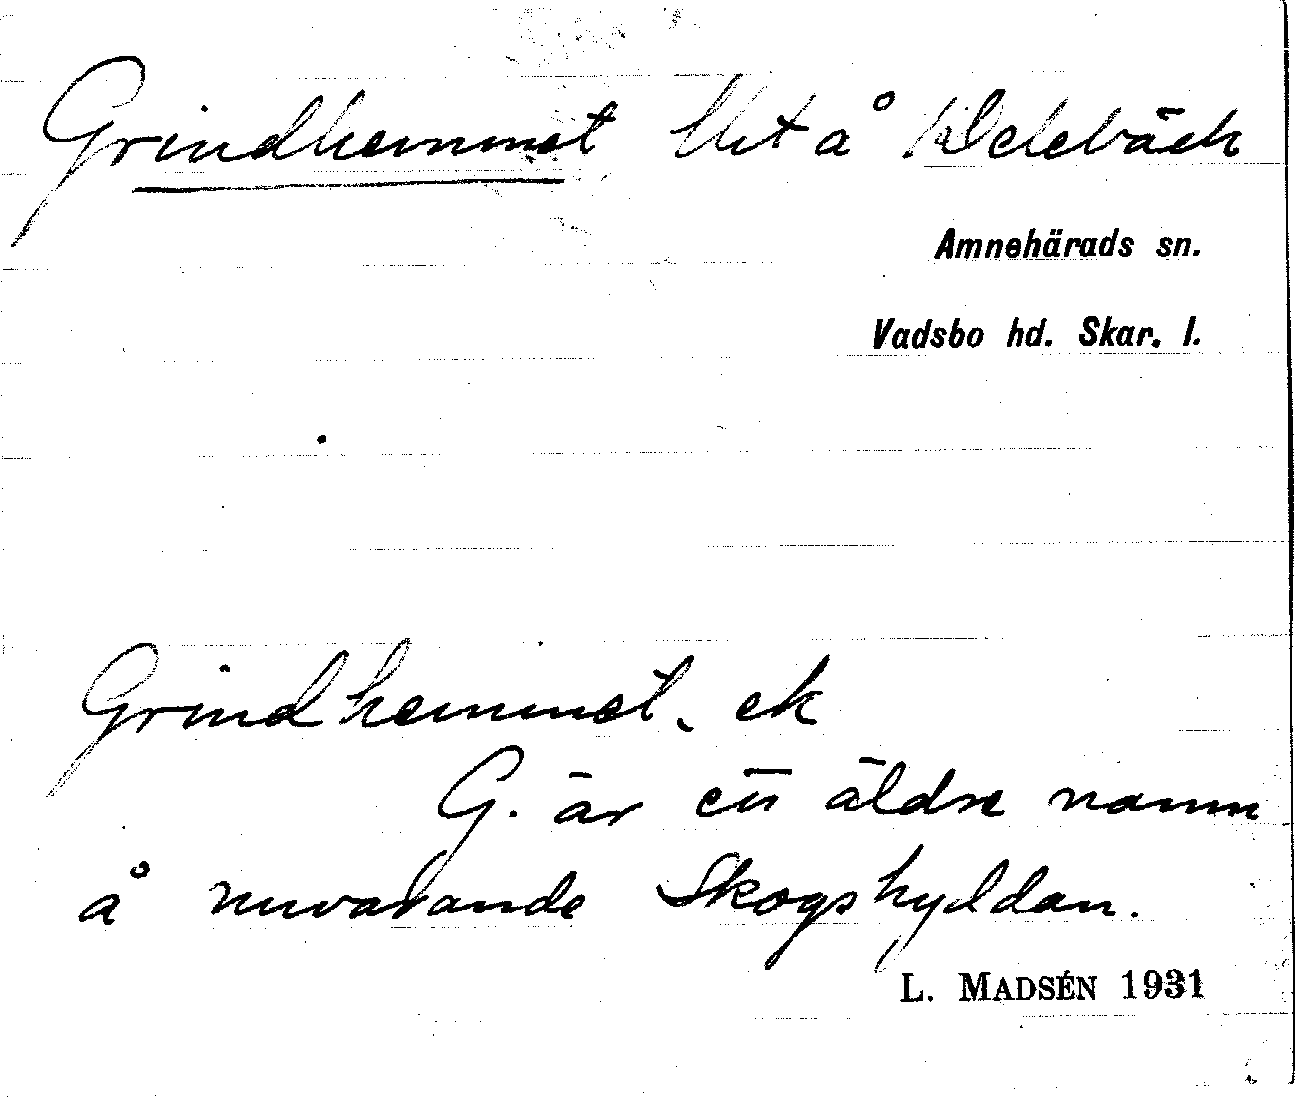 Grindhemmet lht å Delebäck
Amnehärads sn.
Vadsbo hd. Skar. l.
Grindhemmet, ek
G. är ett äldre namn
å nuvarande Skogshyddan.
L. MADSÉN 1931